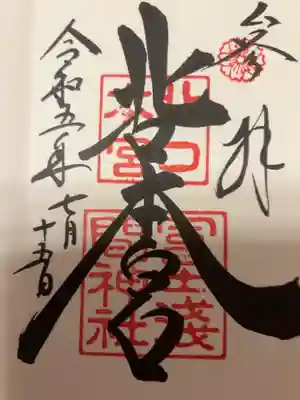 参拝
北口本宮
北口
本宮
冨士淺
間神社
令和五年七月
十五日